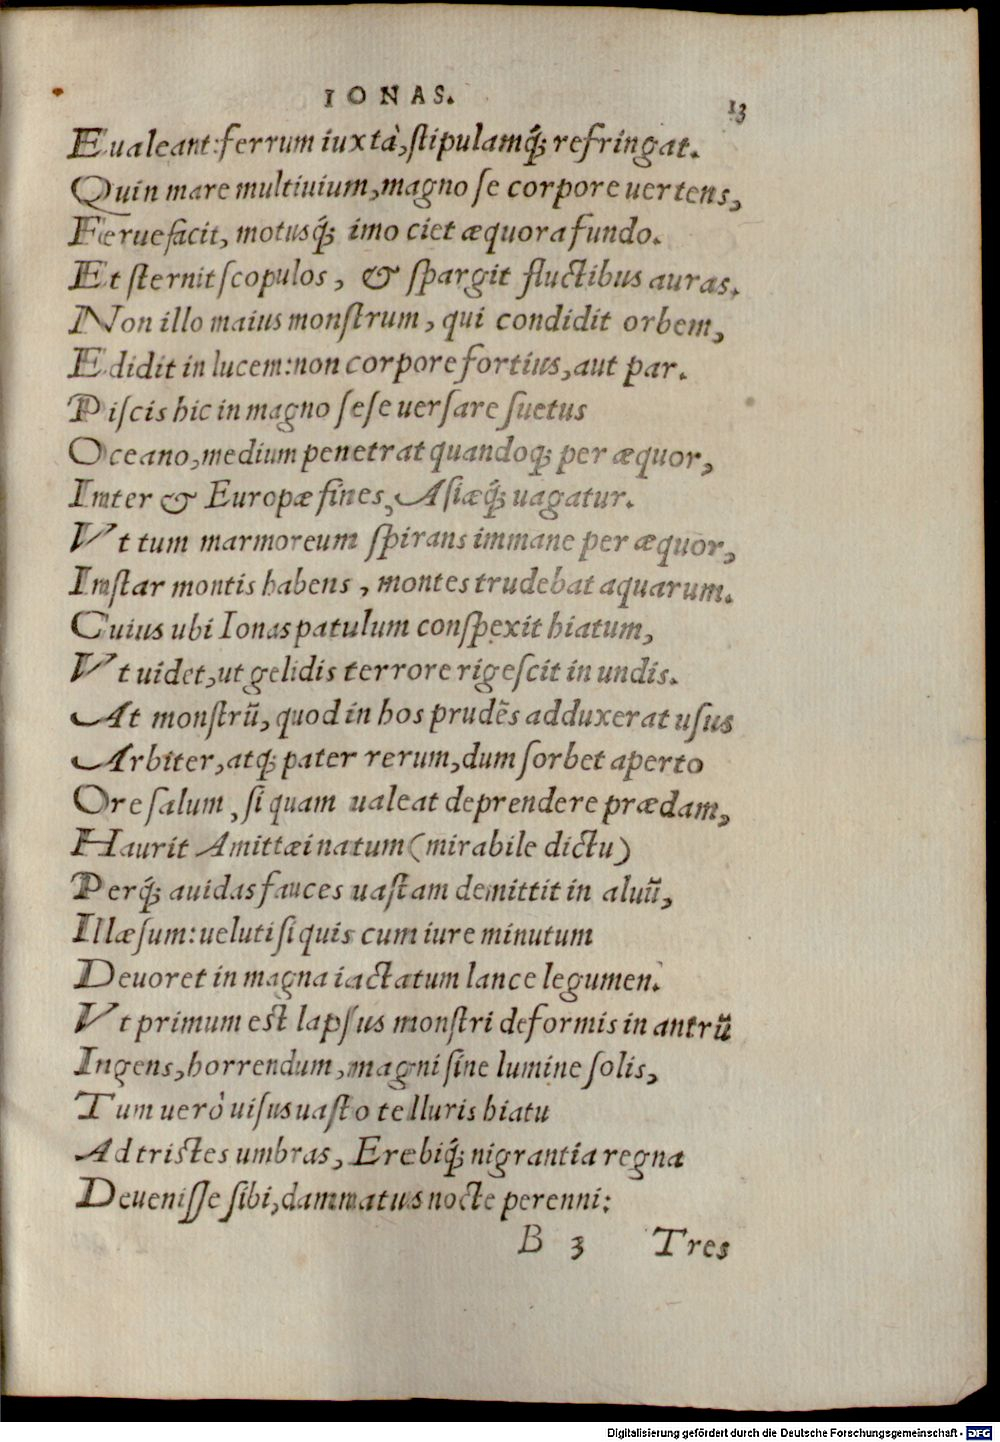 IONAS.
13
Eualeant:ferrum iuxtà, stipulamq́; refringat.
Quin mare multiuium, magno se corpore uertens,
Feruefacit, motusq́; imo ciet æquora fundo.
Et sternit scopulos, & spargit fluctibus auras.
Non illo maius monstrum, qui condidit orbem,
Edidit in lucem: non corpore fortius, aut par.
Piscis hic in magno sese uersare suetus
Oceano, medium penetrat quandoq; per æquor,
Inter & Europæ fines, Asiæq́; uagatur.
Vt tum marmoreum spirans immane per æquor,
Instar montis habens, montes trudebat aquarum.
Cuius ubi Ionas patulum conspexit hiatum,
Vt uidet, ut gelidis terrore rigescit in undis.
At monstrũ, quod in hos prudẽs adduxerat usus
Arbiter, atq; pater rerum, dum sorbet aperto
Ore salum, si quam ualeat deprendere prædam,
Haurit Amittæi natum (mirabile dictu)
Perq́; auidas fauces uastam demittit in aluũ,
Illæsum: ueluti si quis cum iure minutum
Deuoret in magna iactatum lance legumen.
Vt primum est lapsus monstri deformis in antrũ
Ingens, horrendum, magni sine lumine solis,
Tum uerò uisus uasto telluris hiatu
Ad tristes umbras, Erebiq́; nigrantia regna
Deuenisse sibi, dammatus nocte perenni:
B 3 Tres
Digitalisierung gefördert durch die Deutsche Forschungsgemeinschaft - DFG